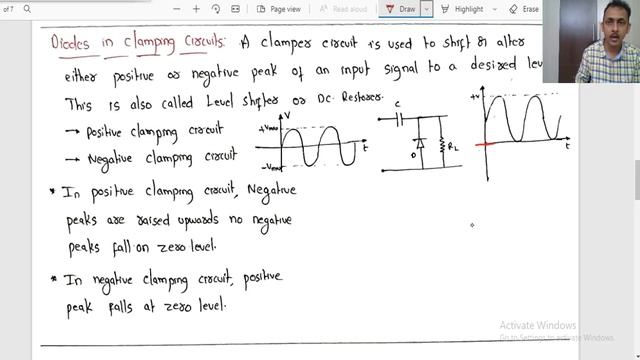 of 7
Page view
Read aloud
Draw
Highlight
Erase
Diodes in clamping Circuits: A clamper circuit is used to shift or alter
either positive or negative peak of an input signal to a desired
This is also called Level shifter or DC Restorer.
→ Positive clamping circuit
→ Negative clamping circuit
V
+Vmax
-Vmax
t
C
D
RL
+V
t
* In positive clamping circuit, Negative
peaks are raised upwards no negative
peaks fall on zero level.
* In negative clamping circuit, positive
peak falls at zero level.
Activate Windows
Go to Settings to activate Windows.